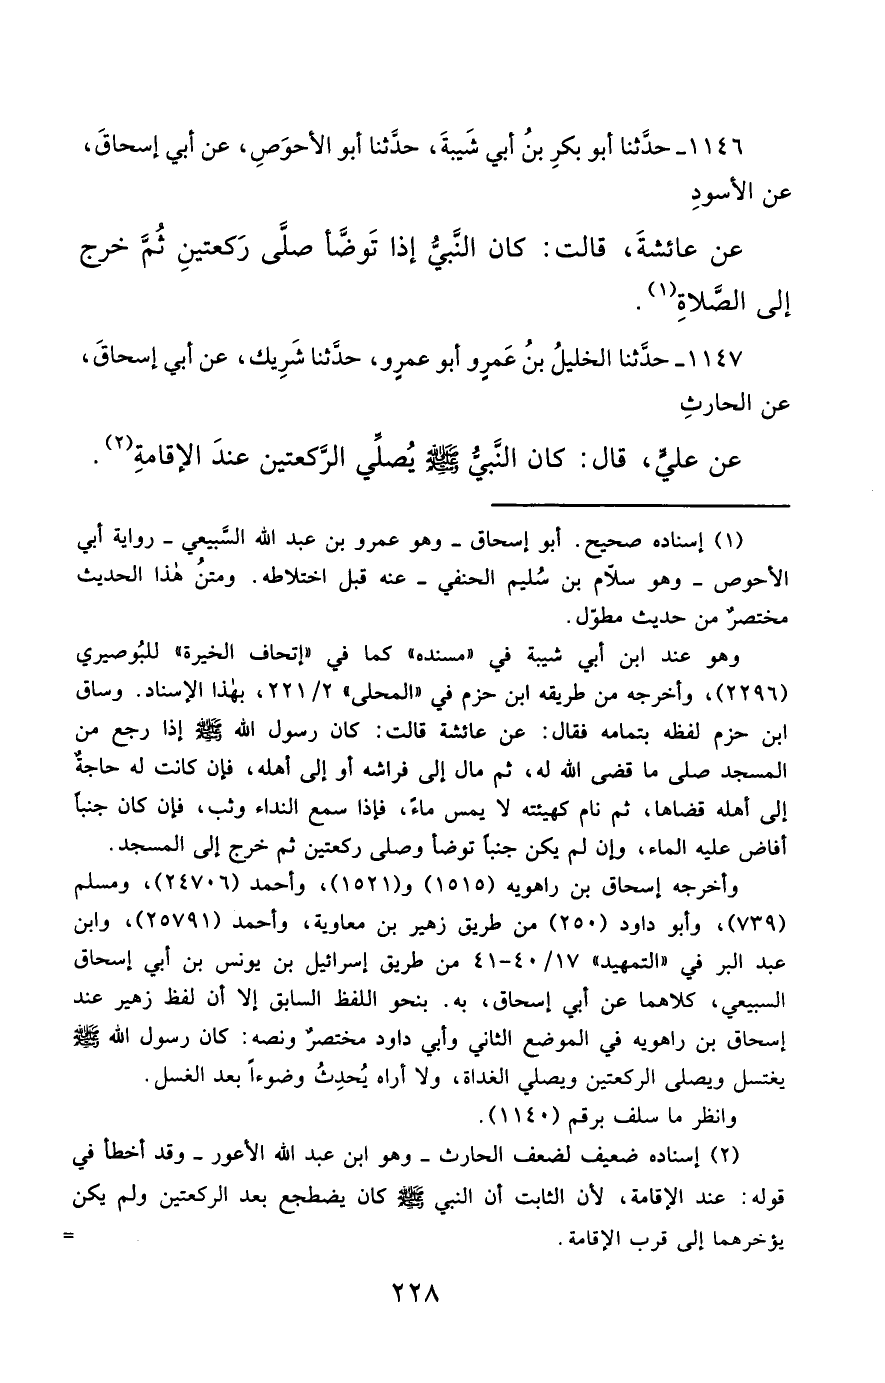 ١١٤٦ـ حدَّثنا أبو بكرِ بنُ أبي شَيبةَ، حدَّثنا أبو الأحوَصِ، عن أبي إسحاقَ،
عن الأسودِ
عن عائشةَ، قالت: كان النَّبيُّ إذا تَوضَّأ صلَّى رَكعتينِ ثُمَّ خرج
إلى الصَّلاةِ(١).
١١٤٧ـ حدَّثنا الخليلُ بنُ عَمرٍو أبو عمرٍو، حدَّثنا شَرِيك، عن أبي إسحاقَ،
عن الحارثِ
عن عليٍّ، قال: كان النَّبيُّ ﷺ يُصلِّي الرَّكعتين عندَ الإقامةِ(٢).
(١) إسناده صحيح. أبو إسحاق ـ وهو عمرو بن عبد الله السَّبيعي ـ رواية أبي
الأحوص ـ وهو سلّام بن سُليم الحنفي ـ عنه قبل اختلاطه. ومتنُ هٰذا الحديث
مختصرٌ من حديث مطوّل.
وهو عند ابن أبي شيبة في «مسنده» كما في «إتحاف الخيرة» للبُوصيري
(٢٢٩٦)، وأخرجه من طريقه ابن حزم في «المحلى» ٢/ ٢٢١، بهٰذا الإسناد. وساق
ابن حزم لفظه بتمامه فقال: عن عائشة قالت: كان رسول الله ﷺ إذا رجع من
المسجد صلى ما قضى الله له، ثم مال إلى فراشه أو إلى أهله، فإن كانت له حاجةٌ
إلى أهله قضاها، ثم نام كهيئته لا يمس ماءً، فإذا سمع النداء وثب، فإن كان جنباً
أفاض عليه الماء، وإن لم يكن جنباً توضأ وصلى ركعتين ثم خرج إلى المسجد.
وأخرجه إسحاق بن راهويه (١٥١٥) و(١٥٢١)، وأحمد (٢٤٧٠٦)، ومسلم
(٧٣٩)، وأبو داود (٢٥٠) من طريق زهير بن معاوية، وأحمد (٢٥٧٩١)، وابن
عبد البر في «التمهيد» ١٧/ ٤٠-٤١ من طريق إسرائيل بن يونس بن أبي إسحاق
السبيعي، كلاهما عن أبي إسحاق، به. بنحو اللفظ السابق إلا أن لفظ زهير عند
إسحاق بن راهويه في الموضع الثاني وأبي داود مختصرٌ ونصه: كان رسول الله ﷺ
يغتسل ويصلى الركعتين ويصلي الغداة، ولا أراه يُحدِثُ وضوءاً بعد الغسل.
وانظر ما سلف برقم (١١٤٠).
(٢) إسناده ضعيف لضعف الحارث ـ وهو ابن عبد الله الأعور ـ وقد أخطأ في
قوله: عند الإقامة، لأن الثابت أن النبي ﷺ كان يضطجع بعد الركعتين ولم يكن
يؤخرهما إلى قرب الإقامة. =
٢٢٨